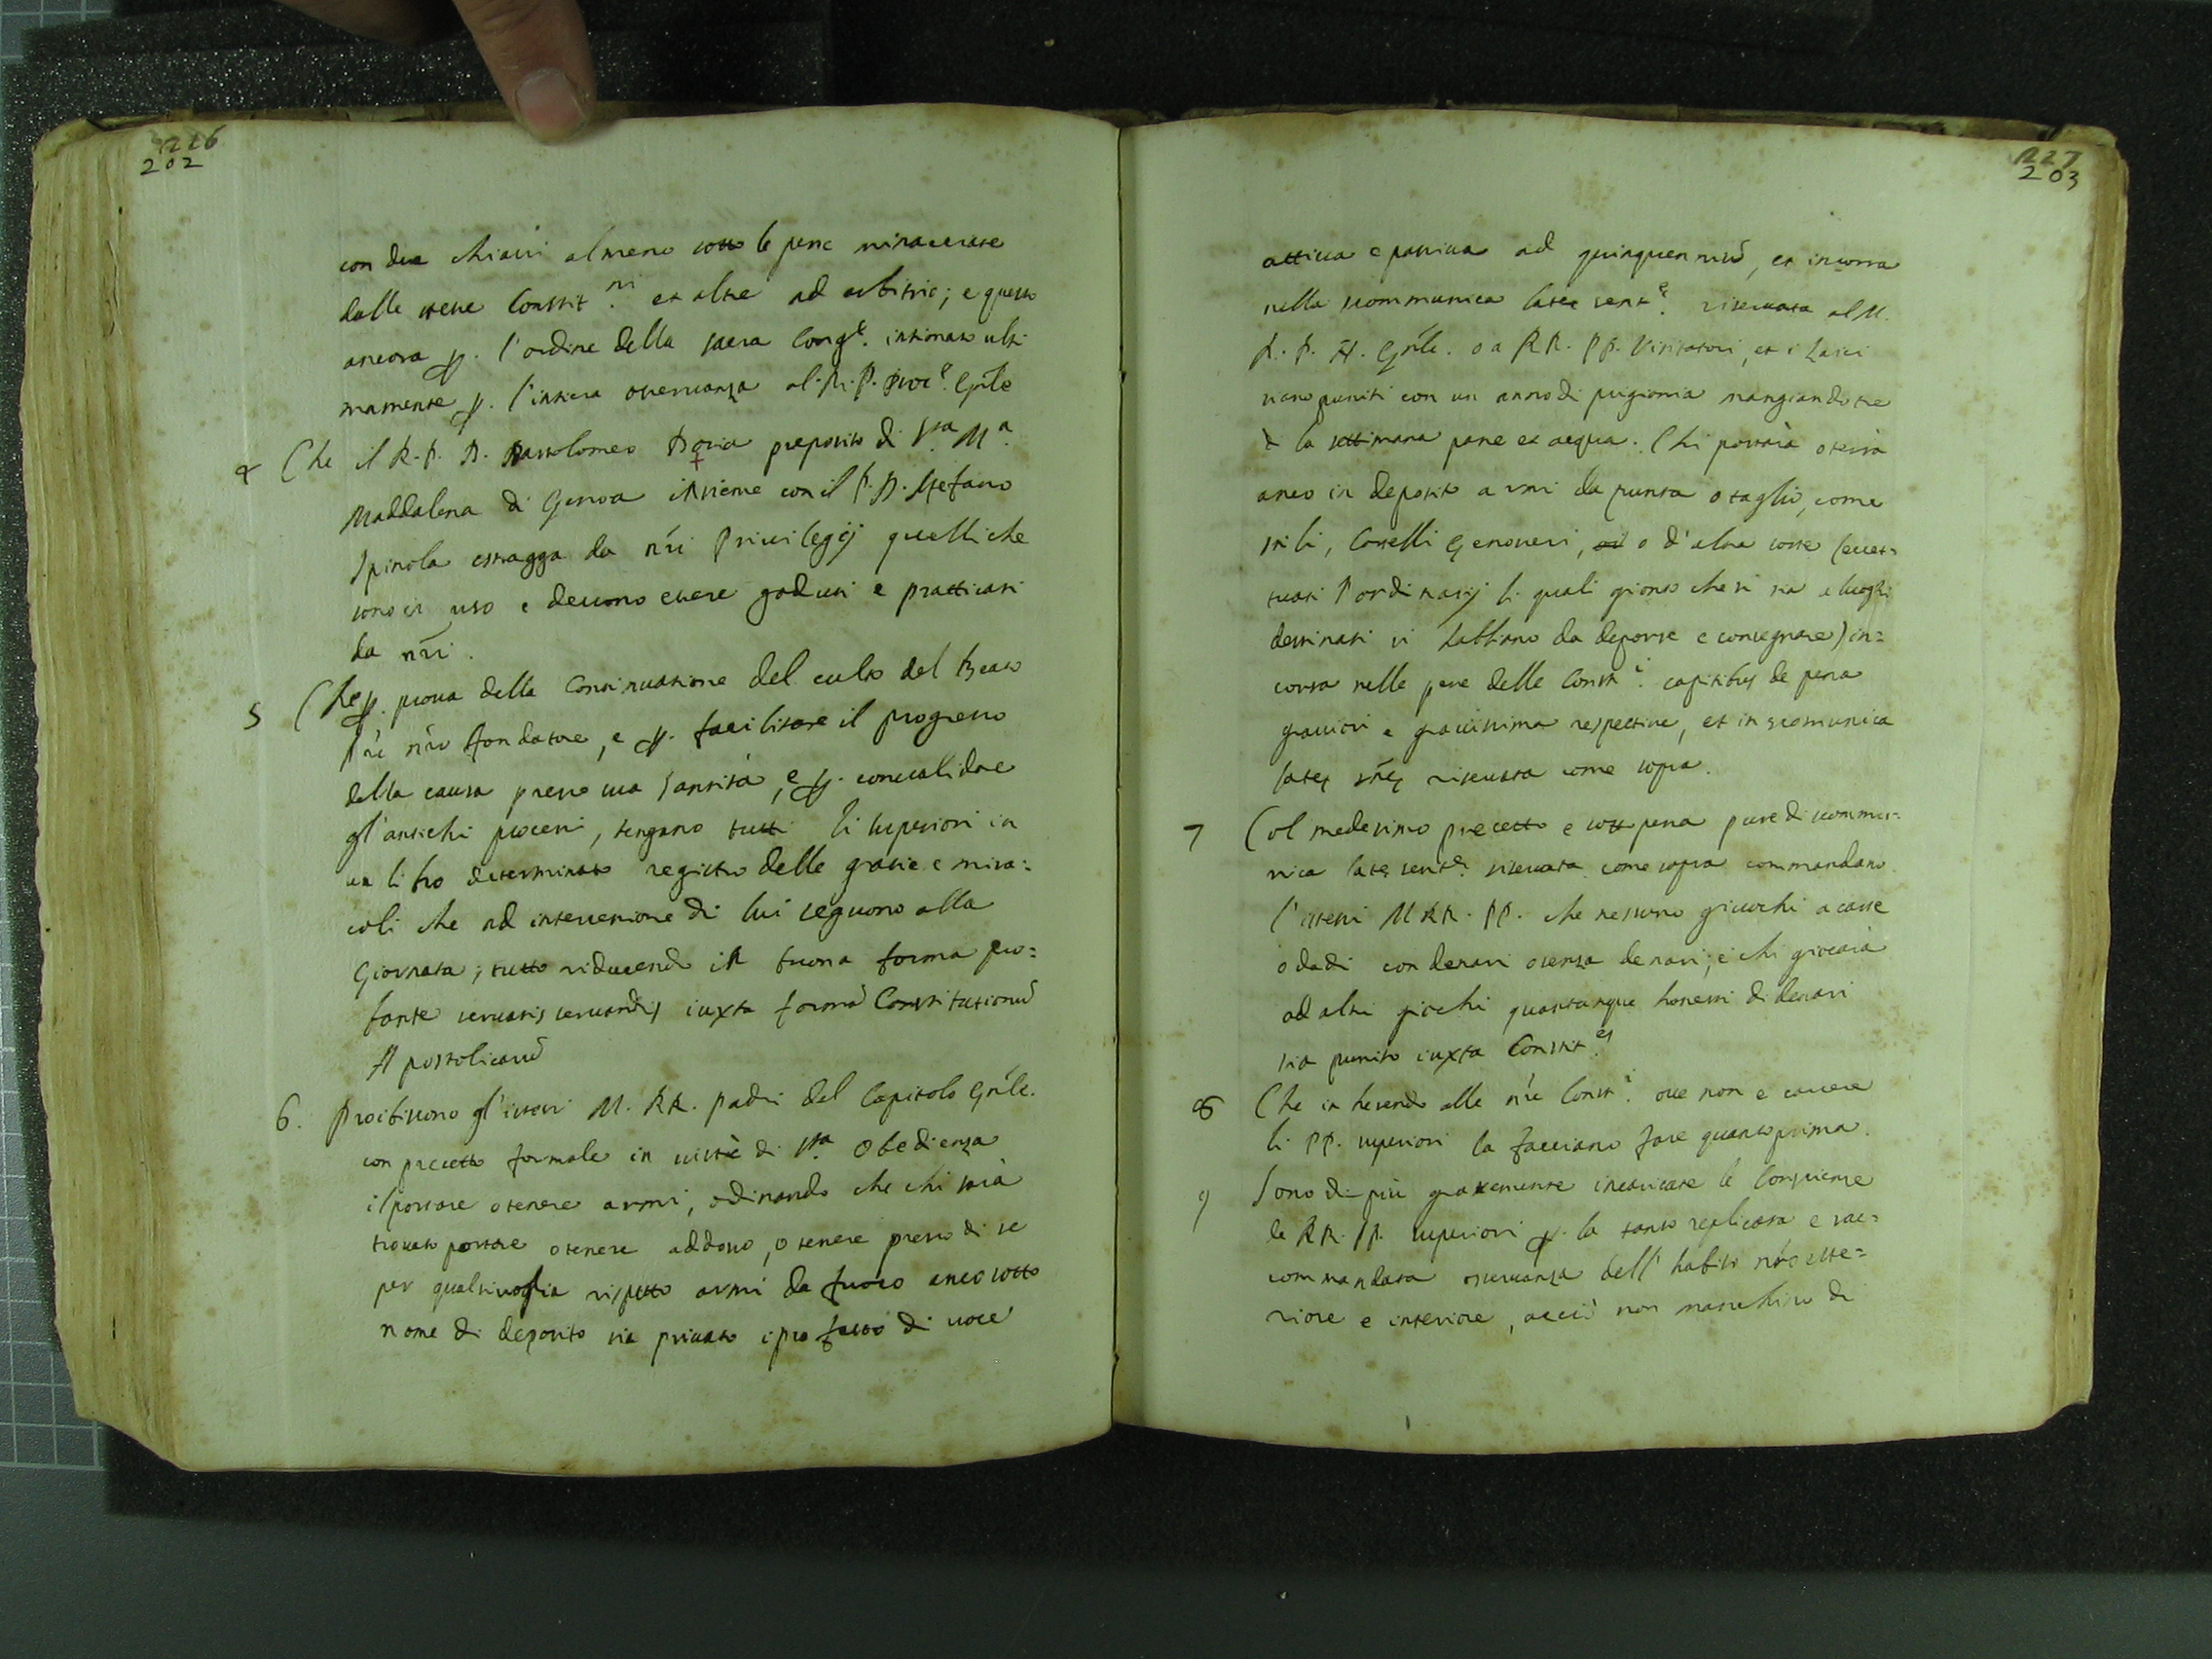 226
202
con due chiavi almeno sotto le pene minacciate
dalle stesse Constit.ni et altre ad arbitrio; e questo
ancora p. l'ordine della sacra Cong.e intimato ulti
mamente p. l'intiera osservanza al R. P. Proc.e Gñle
4 Che il R. P. D. Bartolomeo Doria preposito di S.ta M.a
Maddalena di Genova insieme con il P. D. Stefano
Spinola estragga da nr̃i Privilegij quelli che
sono in uso e devono essere goduti e pratticati
da nr̃i.
5 Che p. prova della Continuatione del culto del Beato
Pr̃e nr̃o fondatore, e p. facilitare il progresso
della causa presso sua Santità, e p. convalidare
gl'antichi processi, tengano tutti li superiori in
un libro determinato registro delle gratie e mira=
coli che ad intercessione di lui seguono alla
Giornata; tutto riducendo in buona forma pro=
bante servatis servandis iuxta formā Constitutionū
Apostolicarū
6. Proibiscono gl'istessi M. RR. padri del Capitolo Gñle.
con precetto formale in virtù di S.ta Obedienza
il portare o tenere armi, ordinando che chi sarà
trovato portare o tenere addosso, o tenere presso di se
per qualsivoglia rispetto armi da fuoco anco sotto
nome di deposito sia privato ipso facto di voce
227
203
attiva e passiva ad quinquenniū, et incorra
nella scommunica latae sent.e riservata al M.
R. P. N. Gñle. o a RR. PP. Visitatori, et i Laici
siano puniti con un anno di prigionia mangiando tre
la settimana pane et acqua. Chi portarà o terrà
anco in deposito armi da punta o taglio, come
stili, Coltelli Genovesi, o d'altra sorte (eccet=
tuati l'ordinarij li quali gionto che si sia a luoghi
destinati si habbiano da deporre e consegnare) in=
corra nelle pene delle Const.i capitibus de pena
graviori e gravissima respective, et in scomunica
latae sñae riservata come sopra.
7 Col medesimo precetto e sotto pena pure di scommu=
nica latae sent.e riservata come sopra commandano
l'istessi M RR. PP. che nessuno giuochi a carte
o dadi con denari o senza denari; e chi giocarà
ad altri giochi quantunque honesti di denari
sia punito iuxta Constit.es
8 Che inherendo alle nr̃e Const.i ove non è carcere
li PP. superiori la facciano fare quanto prima.
9 Sono di più gravemente incaricate le Conscienze
de RR. PP. superiori p. la tanto replicata e rac=
commandata osservanza dell'habito nr̃o este=
riore e interiore, acciò non marchino di